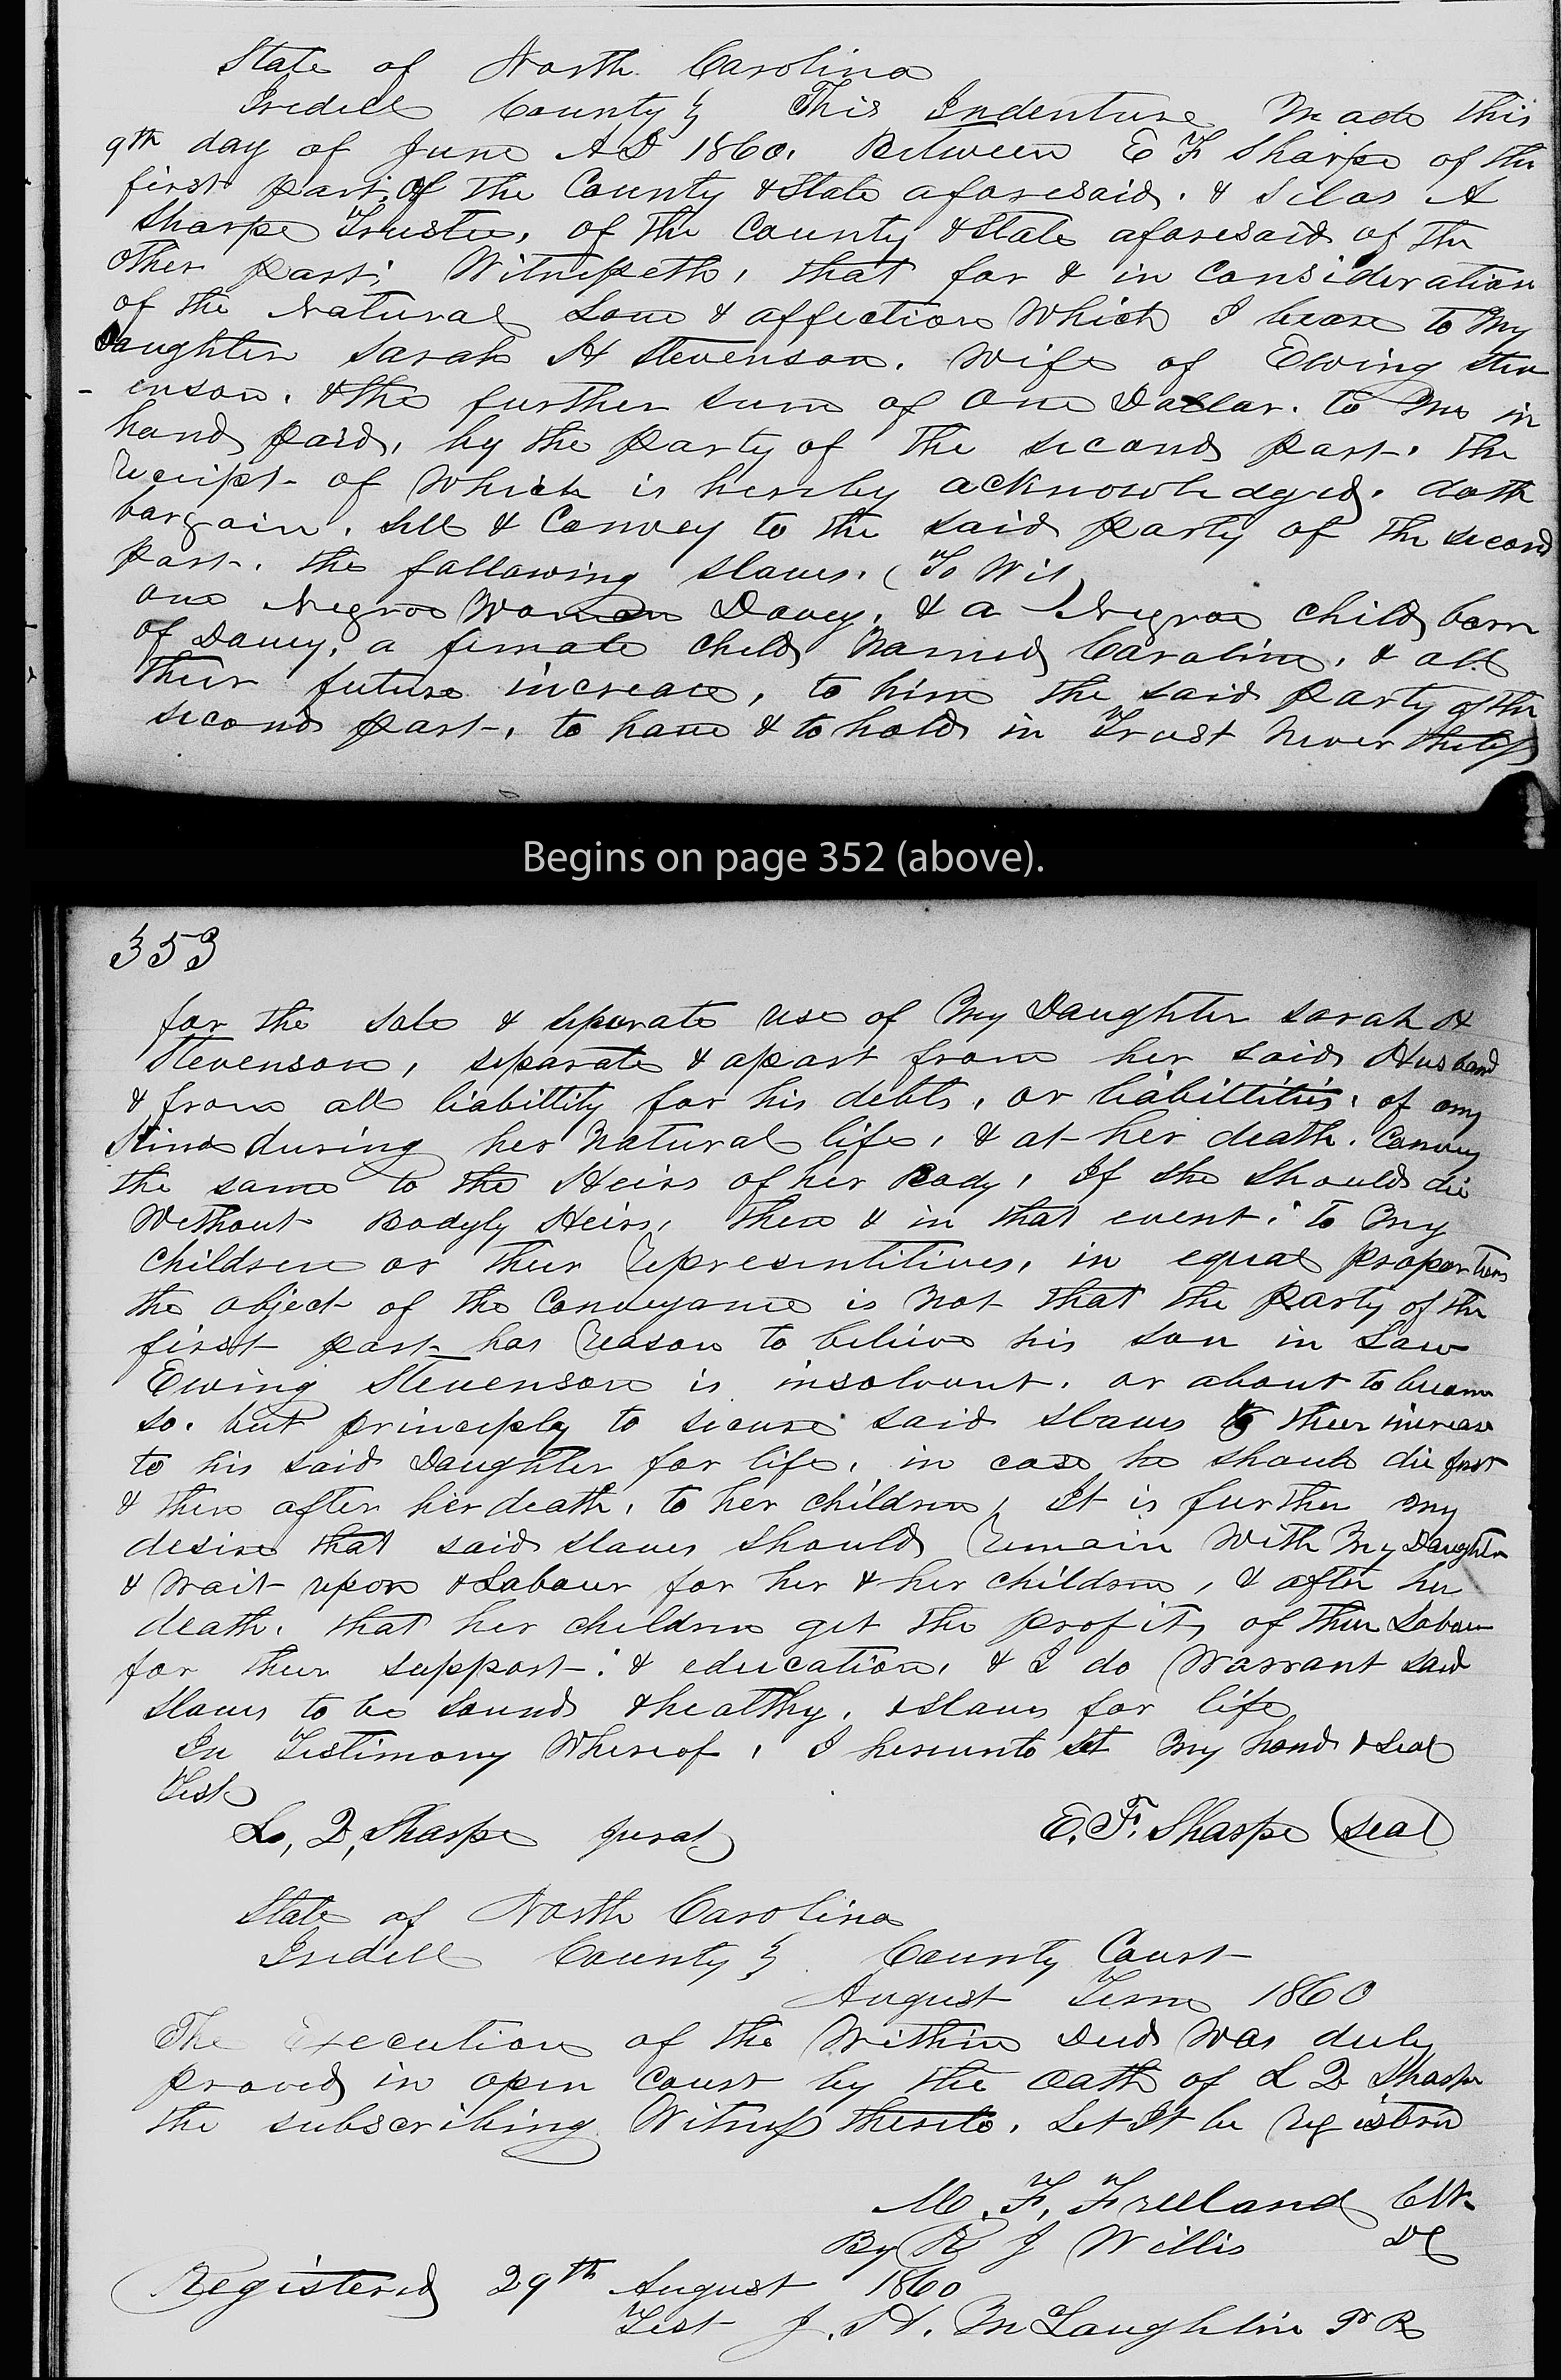 State of North Carolina
Iredell County } This Indenture Made this
9th day of June AD 1860. Between E F Sharpe of the
first part, of the County & State aforesaid. & Silas A
Sharpe Trustee, of the County & State aforesaid of the
other part; Witnesseth, that for & in consideration
of the Natural Love & affection Which I beare to My
Daughter Sarah H Stevenson. Wife of Ewing Stev
- enson. & the further sum of One Dollar. to me in
hand paid, by the party of the second part. the
receipt of Which is hereby acknowledged. doth
bargain. sell & Convey to the said party of the second
part. the following slaves. (To Wit)
one Negroe Woman Davey, & a Negroe child born
of Davey, a female child Named Caroline, & all
their future increase, to him the said party of the
second part, to have & to hold in Trust Never theless
Begins on page 352 (above).
353
for the sole & seperate use of My Daughter Sarah H
Stevenson, separate & apart from her said Husband
& from all liabillity for his debts, or liabillities, of any
Kind during her Natural life, & at her death. Convey
the same to the Heirs of her Body, If she should die
Without Bodyly Heirs, then & in that event; to my
children or their representitives, in equal proportions
the object of the Conveyance is Not that the Party of the
first part has reason to believe his son in Law
Ewing Stevenson is insolvent. or about to become
so. but principly to secure said slaves & their increase
to his said Daughter for life, in case he should die first
& then after her death, to her children, It is further my
desire that said slaves should remain With My Daughter
& Wait upon & Labour for her & her children, & after her
death. that her children get the profits of their Labour
for their support. & education, & I do Warrant said
slaves to be sound & healthy, & slaves for life
In Testimony Whereof, I hereunto set my hand & seal
Test
L, Q, Sharpe jurat E. F. Sharpe (seal)
State of North Carolina
Iredell County } County Court
August Term 1860
The Execution of the Within Deed Was duly
proved in open Court by the oath of L Q Sharpe
the subscribing Witness thereto. Let It be registered
M. F. Freeland Clk
By R J Willis DC
Registered 29th August 1860
Test J. H. McLaughlin P R